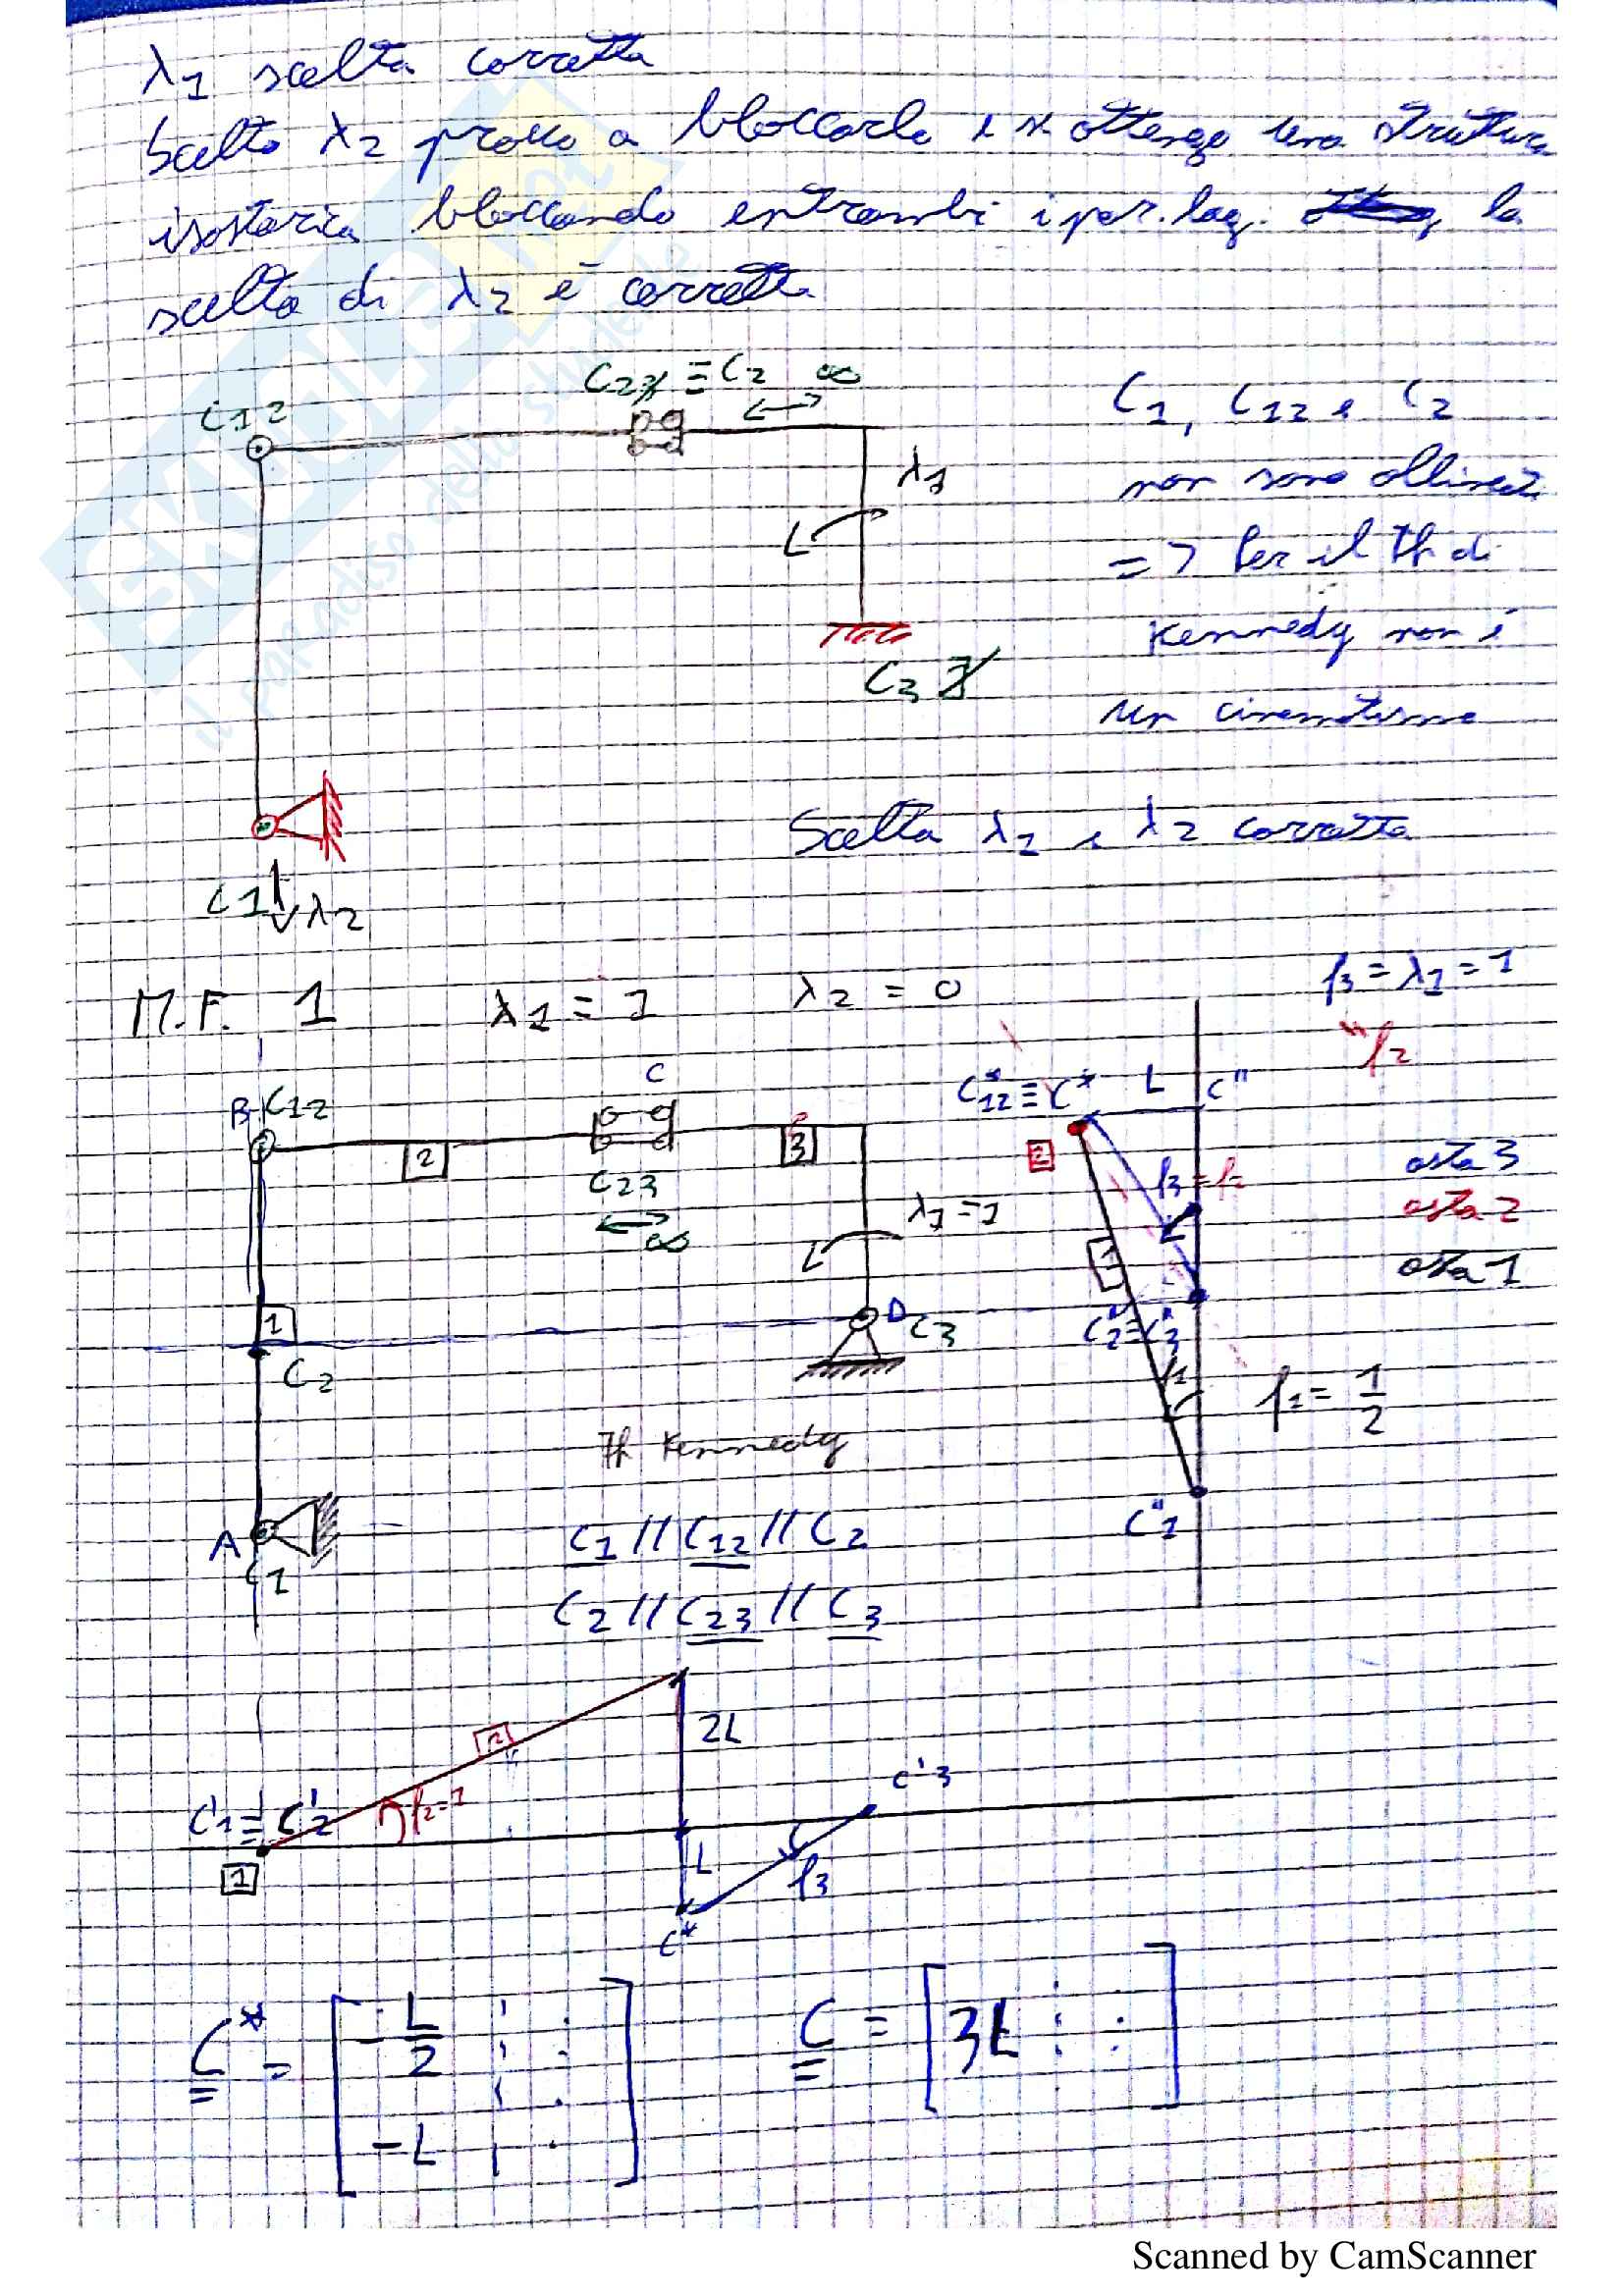 λ1 scelta corretta
Scelto λ2 provo a bloccarlo e se ottengo una struttura
isostatica bloccando entrambi i par. lag. la
scelta di λ2 è corretta
C12
C2 ≡ C2 ∞
λ1
C3 ∄
C1 λ2
C1, C12 e C2
non sono allineati
=> Per il Th di
Kennedy non è
un cinematismo
Scelta λ1 e λ2 corretta
M.F. 1 λ1 = 1 λ2 = 0
f3 = λ1 = 1
f2
B C12
C
2
3
C23
∞
λ1=1
1
C2
D
C3
A
C1
C*12 ≡ C* L C"
2
f3 = f2
1
C"2 ≡ C"3
f1
f1 = 1/2
C"1
asta 3
asta 2
asta 1
Th Kennedy
C1 // C12 // C2
C2 // C23 // C3
2
2L
C'3
C'1 ≡ C'2
f2=1
1
L
f3
C*
C* = [ -L/2
-L ]
C = [ 3L ]
SKUOLA.net
il paradiso dello studente
Scanned by CamScanner